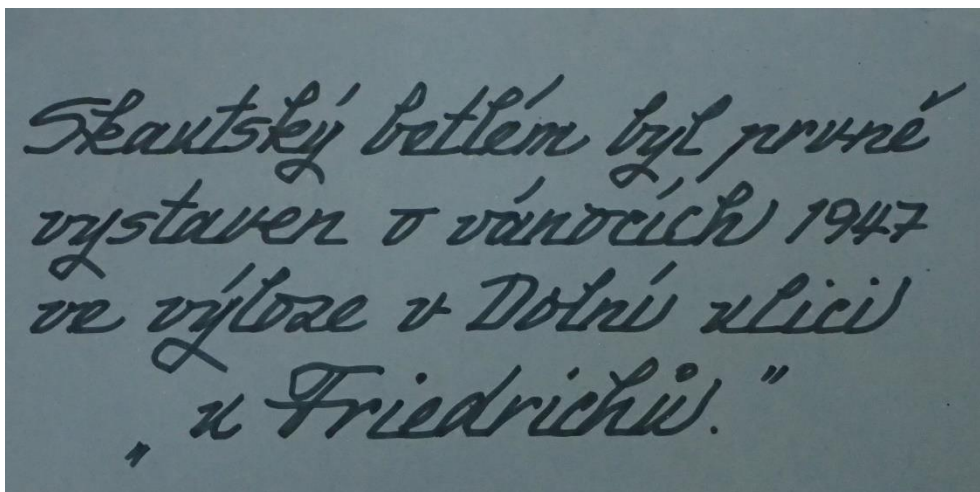 Skautský betlém byl prvně
vystaven o vánocích 1947
ve výloze v Dolní ulici
„ u Friedrichů."